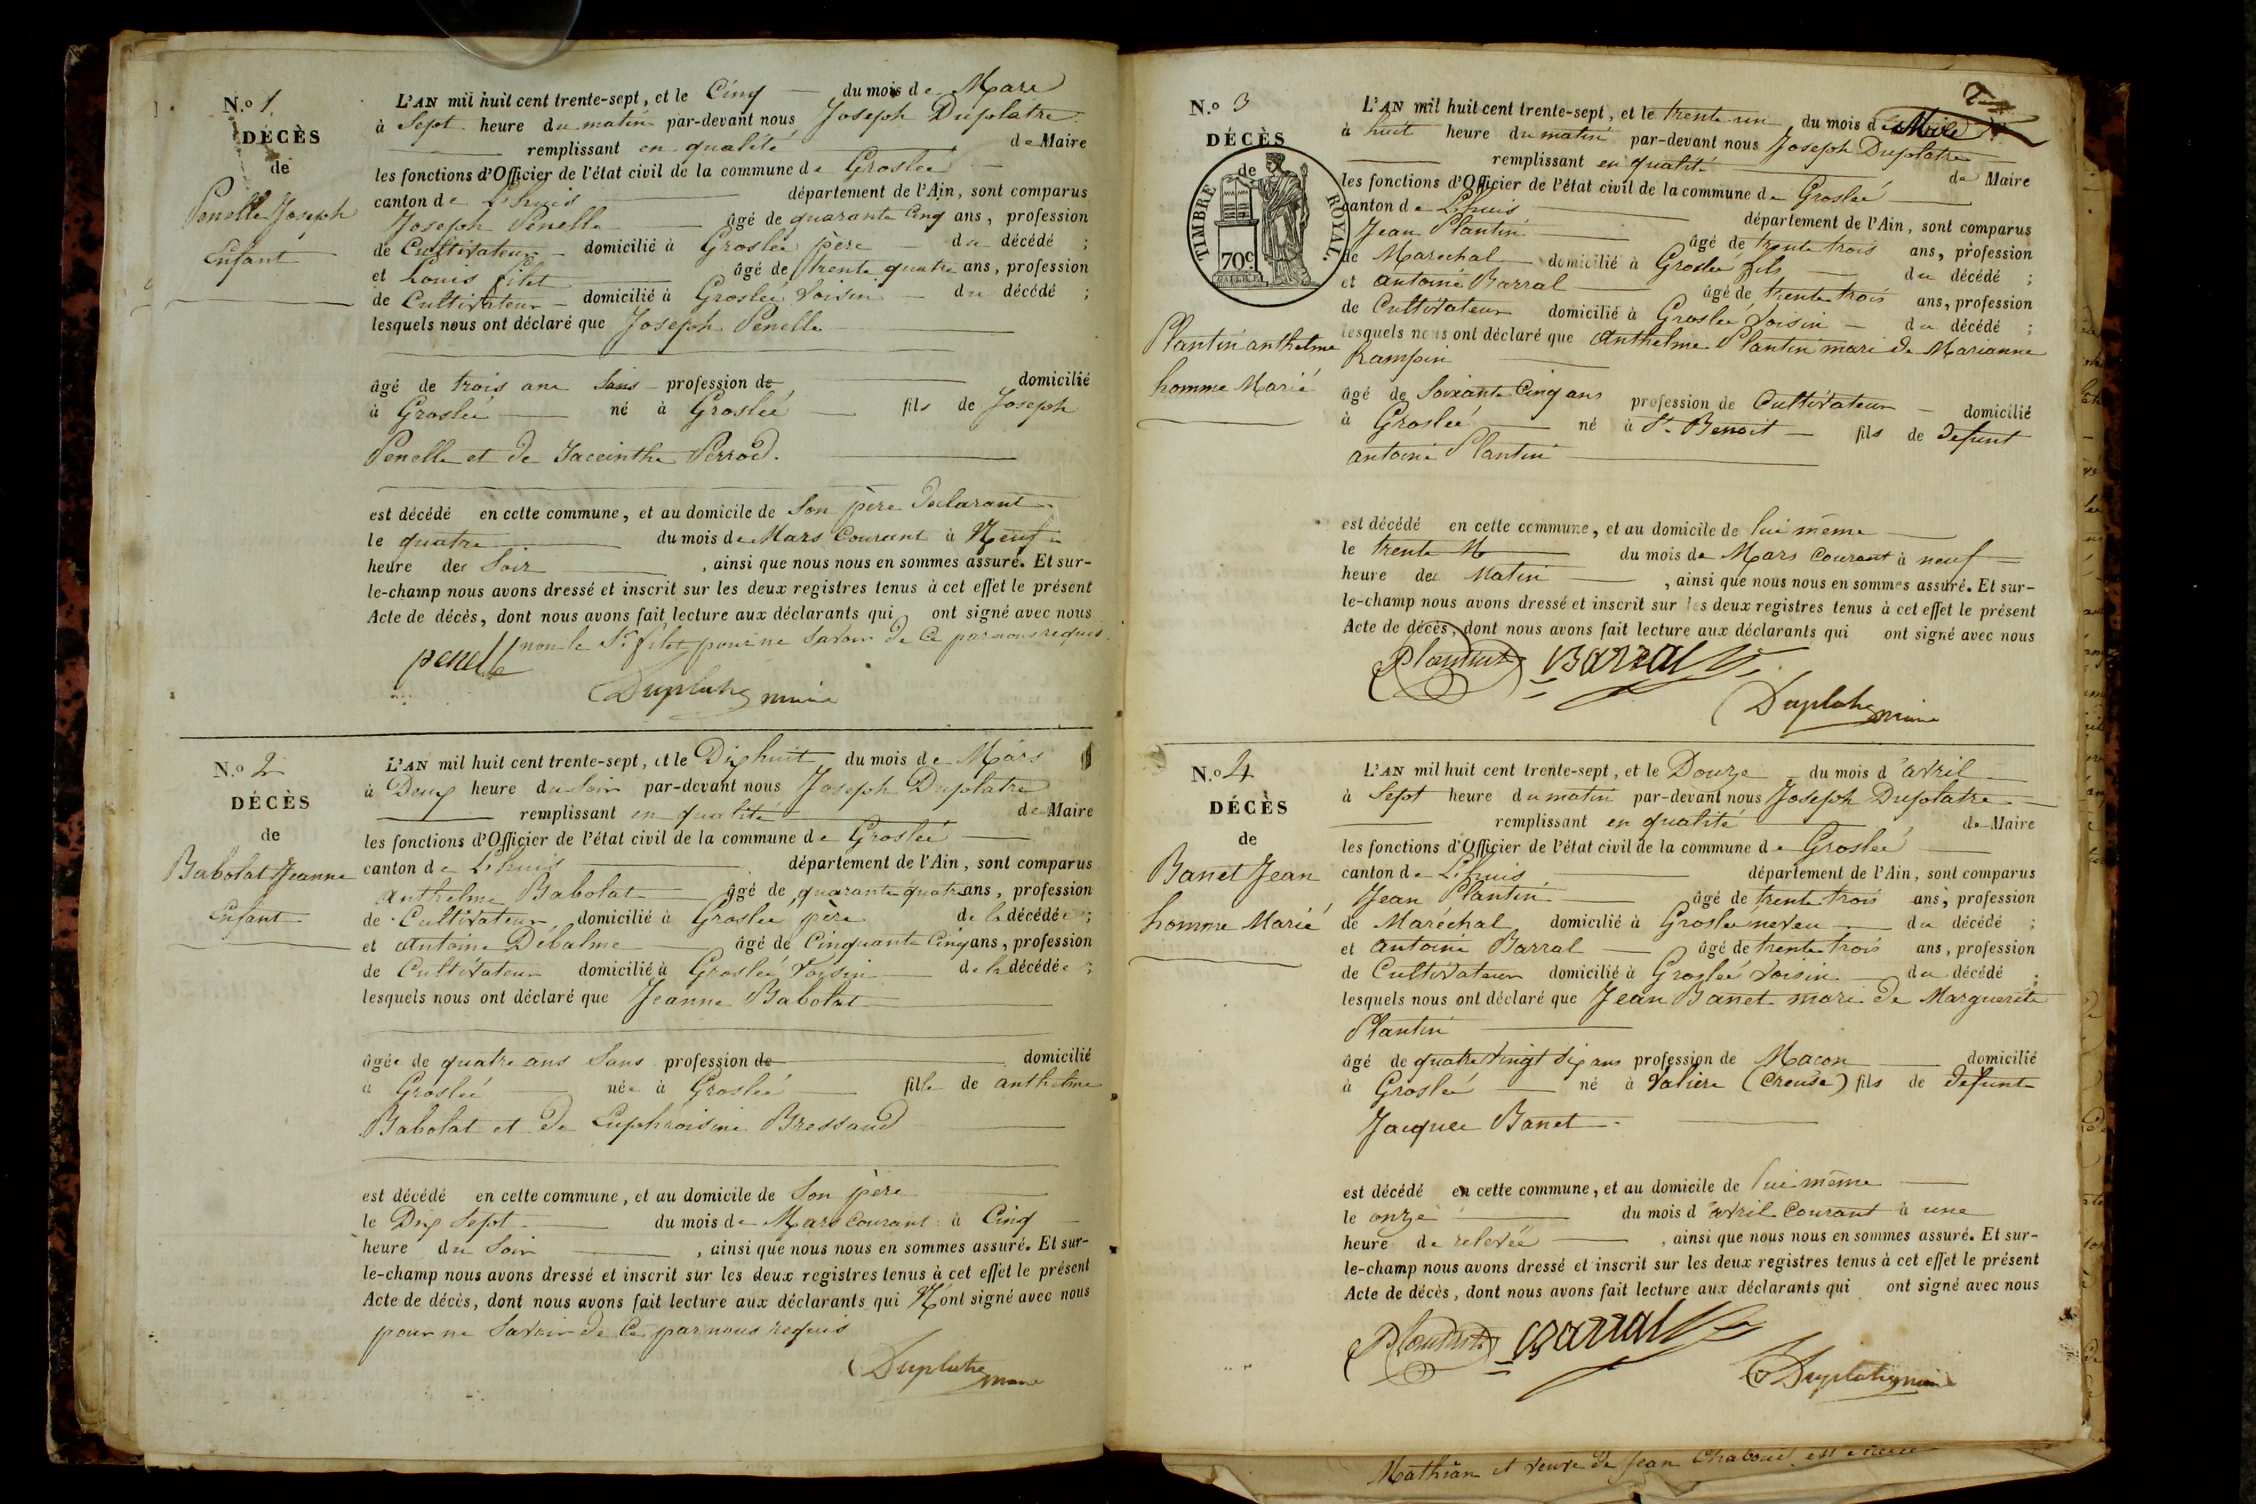 N.º 1.
DÉCÈS
de
Penelle Joseph
Enfant
L'AN mil huit cent trente-sept, et le Cinq du mois de Mars
à Sept heure du matin par-devant nous Joseph Duplatre
remplissant en qualité de Maire
les fonctions d'Officier de l'état civil de la commune de Groslée
canton de Lhuis département de l'Ain, sont comparus
Joseph Penelle âgé de quarante Cinq ans, profession
de Cultivateur domicilié à Groslée père du décédé ;
et Louis filet âgé de trente quatre ans, profession
de Cultivateur domicilié à Groslée Voisin du décédé ;
lesquels nous ont déclaré que Joseph Penelle
âgé de trois ans Sans profession de domicilié
à Groslée né à Groslée fils de Joseph
Penelle et de Jaccinthe Perrod.
est décédé en cette commune, et au domicile de Son père Declarant
le quatre du mois de Mars Courant à Neuf
heure de Soir, ainsi que nous nous en sommes assuré. Et sur-
le-champ nous avons dressé et inscrit sur les deux registres tenus à cet effet le présent
Acte de décès, dont nous avons fait lecture aux déclarants qui ont signé avec nous
non le Sr filet pour ne Savoir de Ce par nous requis.
penelle
Duplatre maire
N.º 2
DÉCÈS
de
Babolat Jeanne
Enfant
L'AN mil huit cent trente-sept, et le Dix huit du mois de Mars
à Deux heure du Soir par-devant nous Joseph Duplatre
remplissant en qualité de Maire
les fonctions d'Officier de l'état civil de la commune de Groslée
canton de Lhuis département de l'Ain, sont comparus
Anthelme Babolat âgé de quarante quatre ans, profession
de Cultivateur domicilié à Groslée père de la décédée ;
et Antoine Débalme âgé de Cinquante Cinq ans, profession
de Cultivateur domicilié à Groslée Voisin de la décédée ;
lesquels nous ont déclaré que Jeanne Babolat
âgée de quatre ans Sans profession de domicilié
à Groslée née à Groslée fille de anthelme
Babolat et de Euphroisine Bressaud
est décédé en cette commune, et au domicile de Son père
le Dix Sept du mois de Mars courant à Cinq
heure du Soir, ainsi que nous nous en sommes assuré. Et sur-
le-champ nous avons dressé et inscrit sur les deux registres tenus à cet effet le présent
Acte de décès, dont nous avons fait lecture aux déclarants qui N'ont signé avec nous
pour ne Savoir de Ce par nous requis
Duplatre maire
N.º 3
DÉCÈS
de
TIMBRE ROYAL.
70c
Plantin anthelme
homme Marié
L'AN mil huit cent trente-sept, et le trente un du mois de
à huit heure du matin par-devant nous Joseph Duplatre
remplissant en qualité de Maire
les fonctions d'Officier de l'état civil de la commune de Groslée
canton de Lhuis département de l'Ain, sont comparus
Jean Plantin âgé de trente trois ans, profession
de Marechal domicilié à Groslée fils du décédé ;
et antoine Barral âgé de trente trois ans, profession
de Cultivateur domicilié à Groslée Voisin du décédé ;
lesquels nous ont déclaré que Anthelme Plantin mari de Marianne
Rampin
âgé de Soixante Cinq ans profession de Cultivateur domicilié
à Groslée né à St. Benoit fils de defunt
antoine Plantin
est décédé en cette commune, et au domicile de lui même
le trente du mois de Mars courant à neuf
heure de Matin, ainsi que nous nous en sommes assuré. Et sur-
le-champ nous avons dressé et inscrit sur les deux registres tenus à cet effet le présent
Acte de décès, dont nous avons fait lecture aux déclarants qui ont signé avec nous
Plantin Barral
Duplatre maire
N.º 4
DÉCÈS
de
Banet Jean
homme Marié
L'AN mil huit cent trente-sept, et le Douze du mois d'avril
à Sept heure du matin par-devant nous Joseph Duplatre
remplissant en qualité de Maire
les fonctions d'Officier de l'état civil de la commune de Groslée
canton de Lhuis département de l'Ain, sont comparus
Jean Plantin âgé de trente trois ans, profession
de Maréchal domicilié à Groslée neveu du décédé ;
et antoine Barral âgé de trente trois ans, profession
de Cultivateur domicilié à Groslée Voisin du décédé ;
lesquels nous ont déclaré que Jean Banet mari de Marguerite
Plantin
âgé de quatre Vingt dix ans profession de Macon domicilié
à Groslée né à Valiere (Creuse) fils de defunt
Jacques Banet
est décédé en cette commune, et au domicile de lui même
le onze du mois d'avril Courant à une
heure de relevée, ainsi que nous nous en sommes assuré. Et sur-
le-champ nous avons dressé et inscrit sur les deux registres tenus à cet effet le présent
Acte de décès, dont nous avons fait lecture aux déclarants qui ont signé avec nous
Plantin Barral
Duplatre maire
Mathian et veuve de Jean Chaboud est